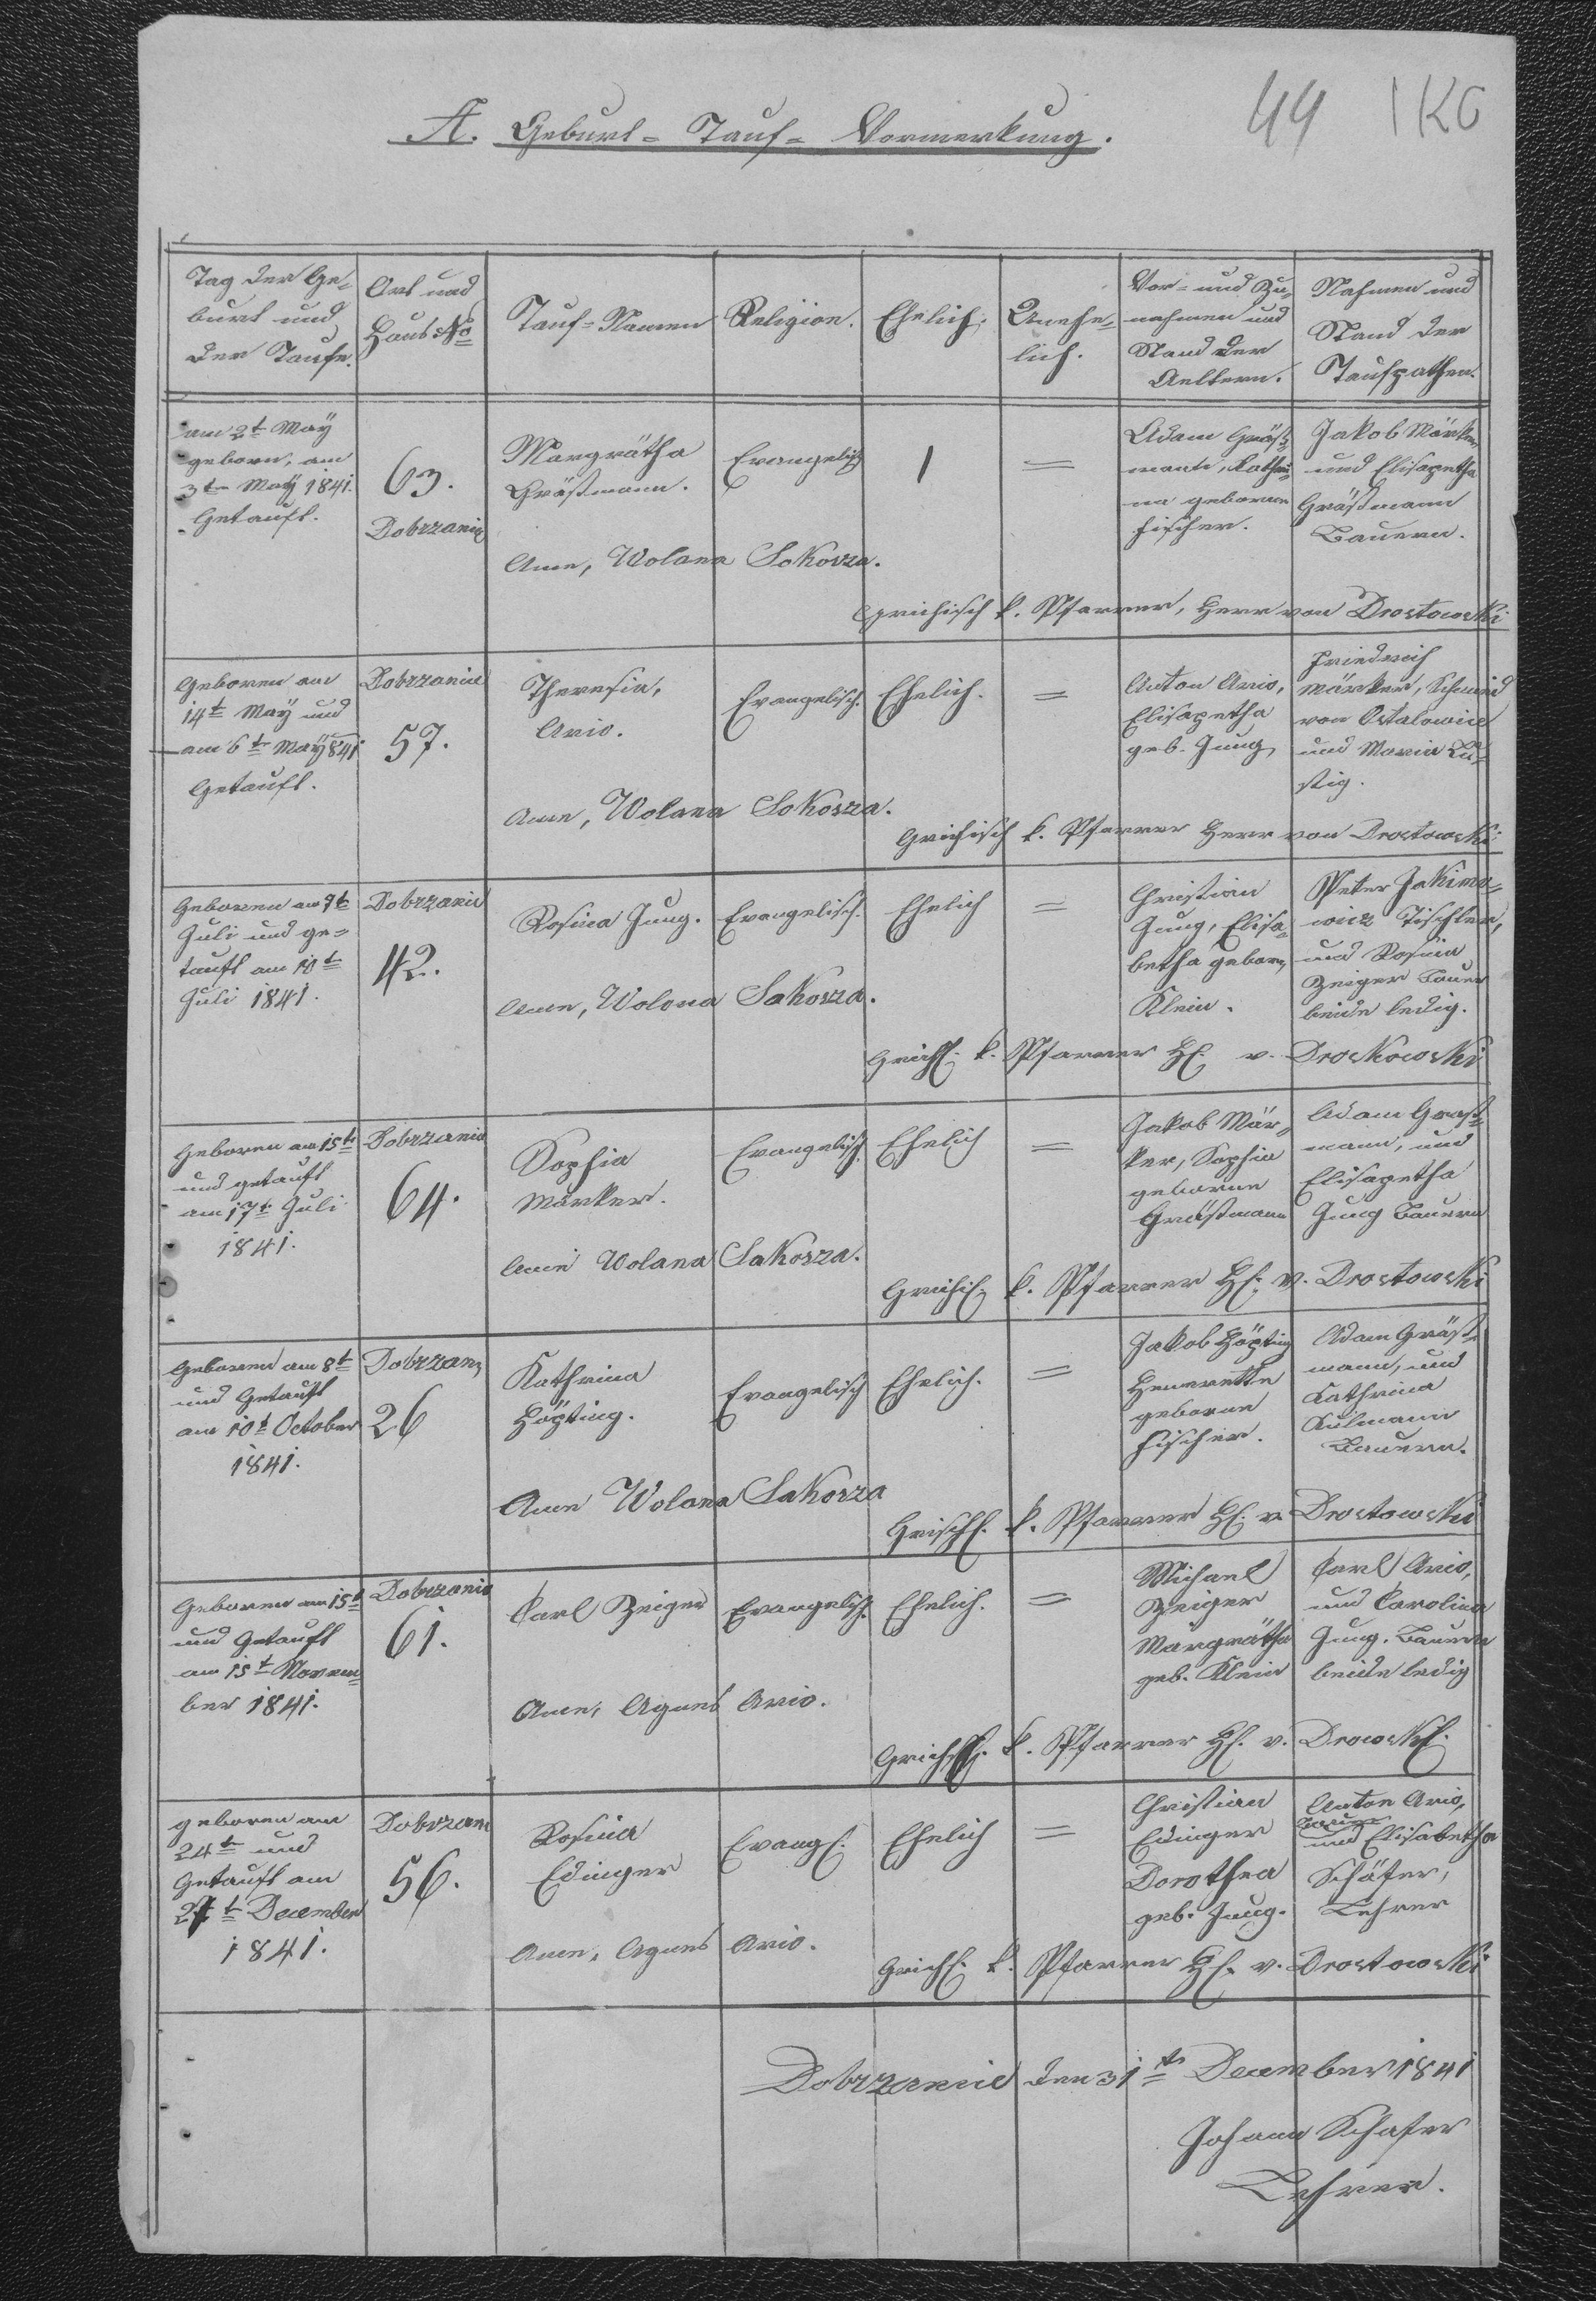 44 1KG
A. Geburt- Tauf- Vormerkung.
Tag der Ge-
burt und
der Taufe.
Ort und
Haus No
Tauf-Namen
Religion.
Ehelich;
Unehe-
lich.
Vor- und Zu-
nahmen und
Stand der
Aeltern.
Nahmen und
Stand der
Taufpathen.
am 2t May
geborn, am
3t May 1841.
Getauft.
63.
Dobrzanic
Margrätha
Gräßmann.
Evangelisch
1
=
Adam Gräß-
mann, Kathri-
na geborne
Fischer.
Jakob Märker,
und Elisapetha
Gräßmann
Bauern.
Ame, Wolana Sokorza.
Grichisch k. Pfarrer, Herr von Drostowski
Geboren am
14t May und
am 6t May 841
Getauft.
Dobrzanice
57.
Theresia,
Ario.
Evangelisch.
Ehelich.
=
Anton Ario,
Elisapetha
geb. Jung
Friedreich
Märker, Schmied
von Ostalowice
und Maria Lu-
stig.
Ame, Wolana Sokorza.
Grichisch k. Pfarrer Herr von Drostowski
Geboren am 9t
Juli und ge-
tauft am 10t
Juli 1841.
Dobrzanic
42.
Rosina Jung.
Evangelisch.
Ehelich
=
Christian
Jung, Elisa-
betha geborn,
Klein.
Peter Jakimo-
wicz Tischler,
und Rosina
Zeiger Bauer
beide ledig.
Ame, Wolona Sakorza.
Grichs. k. Pfarrer H. v. Droskowski
Geboren am 15t
und getauft
am 17t Juli
1841.
Dobrzanic
64.
Sophia
Märker.
Evangelisch
Ehelich
=
Jakob Mär-
ker, Sophia
geborne
Gräßmann
Adam Graß-
mann, und
Elisapetha
Jung Bauern
Ame Wolana Sakorza.
Grichis. k. Pfarrer H. v. Drostowski
Geboren am 8t
und Getauft
am 10t October
1841.
Dobrzan,
26
Kathrina
Höpting.
Evangelisch
Ehelich.
=
Jakob Höpting
Henerette
geborne
Fischer.
Adam Gräß-
mann, und
Kathrina
Kulmann
Bauern.
Ame Wolana Sakorza
Grichs. k. Pfarrer H. v. Drostowski
Geboren am 15t
und Getauft
am 15t Novem-
ber 1841.
Dobrzanic
61.
Carl Zeiger
Evangelisch.
Ehelich.
=
Michael
Zeiger
Margrätha
geb. Klein
Carl Ario,
und Carolina
Jung. Bauern
beide ledig
Ame, Agnes Ario.
Grichs. k. Pfarrer H. v. Drowsk.
geboren am
24t und
Getauft am
27t December
1841.
Dobrzani
56.
Rosina
Edinger
Evangs.
Ehelich
=
Christian
Edinger
Dorothea
geb. Jung.
Anton Ario,
und Elisabetha
Schäfer,
Lehrer
Ame, Agnes Ario.
Grichs. k. Pfarrer H. v. Drostowski
Dobrzanice den 31t December 1841
Johann Schafer
Lehrer.